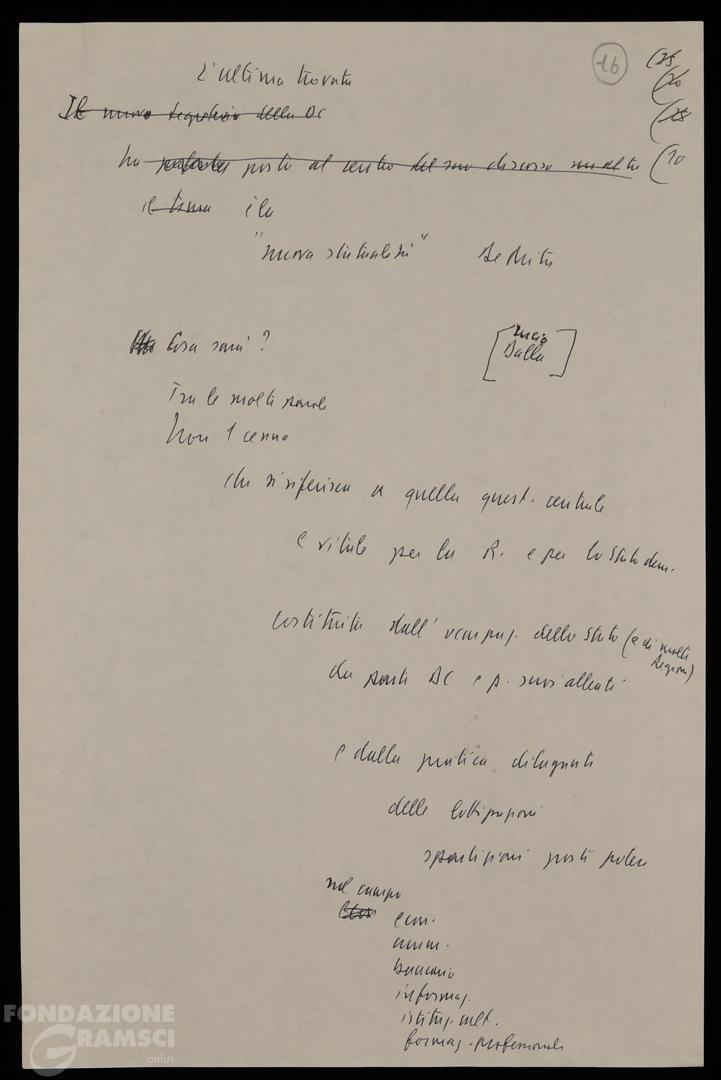 16
(25
(20
(25
(10
L'ultima trovata
Il nuovo segretario della DC
ha posto al centro del suo discorso
il tema è la
"nuova statualità" De Mita
Cosa sarà?
[Lucio
Dalla]
Tra le molte parole
Non 1 cenno
che si riferisca a quella quest. centrale
e vitale per la R. e per lo Stato dem.
costituita dall'occupaz. dello Stato (e di molte
Regioni)
da parte DC e p. suoi alleati
e dalla pratica dilagante
delle lottizzazioni
spartizioni posti potere
nel campo
econ.
amm.
bancario
informaz.
istituz. cult.
formaz. professionale
FONDAZIONE
GRAMSCI
onlus